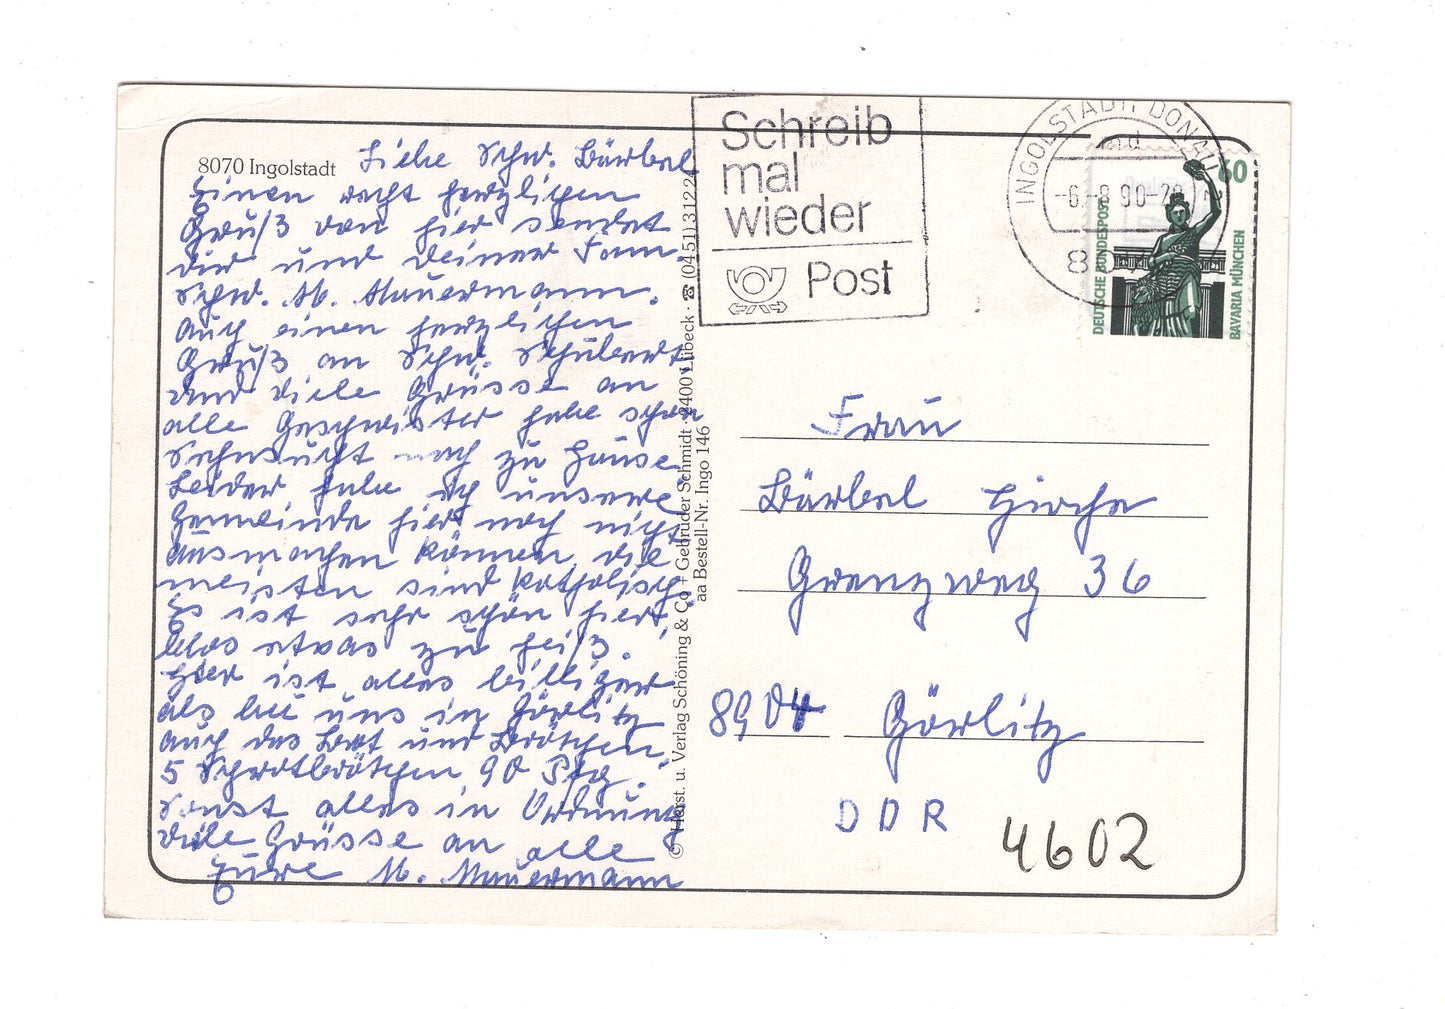 8070 Ingolstadt
Liebe Schw. Bärbel
Einen recht herzlichen
Gruß von hier sendet
dir und deiner Fam.
Schw. M. Mauermann.
Auch einen herzlichen
Gruß an Schw. Schubert
und viele Grüsse an
alle Geschwister habe schon
Sehnsucht nach zu Hause
Leider habe ich unsere
Gemeinde hier noch nicht
ausmachen können die
meisten sind katholisch.
Es ist sehr schön hier,
blos etwas zu heiß.
Hier ist alles billiger
als bei uns in Görlitz
auch das Brot und Brötchen,
5 Schrotbrötchen 90 Pfg.
Sonst alles in Ordnung
Viele Grüsse an alle
Eure M. Mauermann
© Horst. u. Verlag Schöning & Co + Gebrüder Schmidt · 2400 Lübeck · ☎ (0451) 31220
aa Bestell-Nr. Ingo 146
Schreib
mal
wieder
Post
INGOLSTADT, DONAU
md
-6.-8.90-20
8
60
DEUTSCHE BUNDESPOST
BAVARIA MÜNCHEN
Frau
Bärbel Hirche
Grenzweg 36
8904 Görlitz
DDR
4602